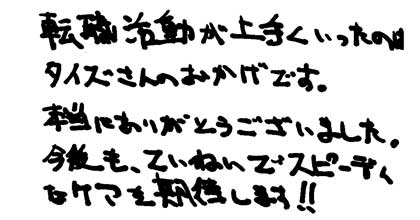 転職活動が上手くいったのは
タイズさんのおかげです。
本当にありがとうございました。
今後も、ていねいでスピーディ
なケアを期待します!!